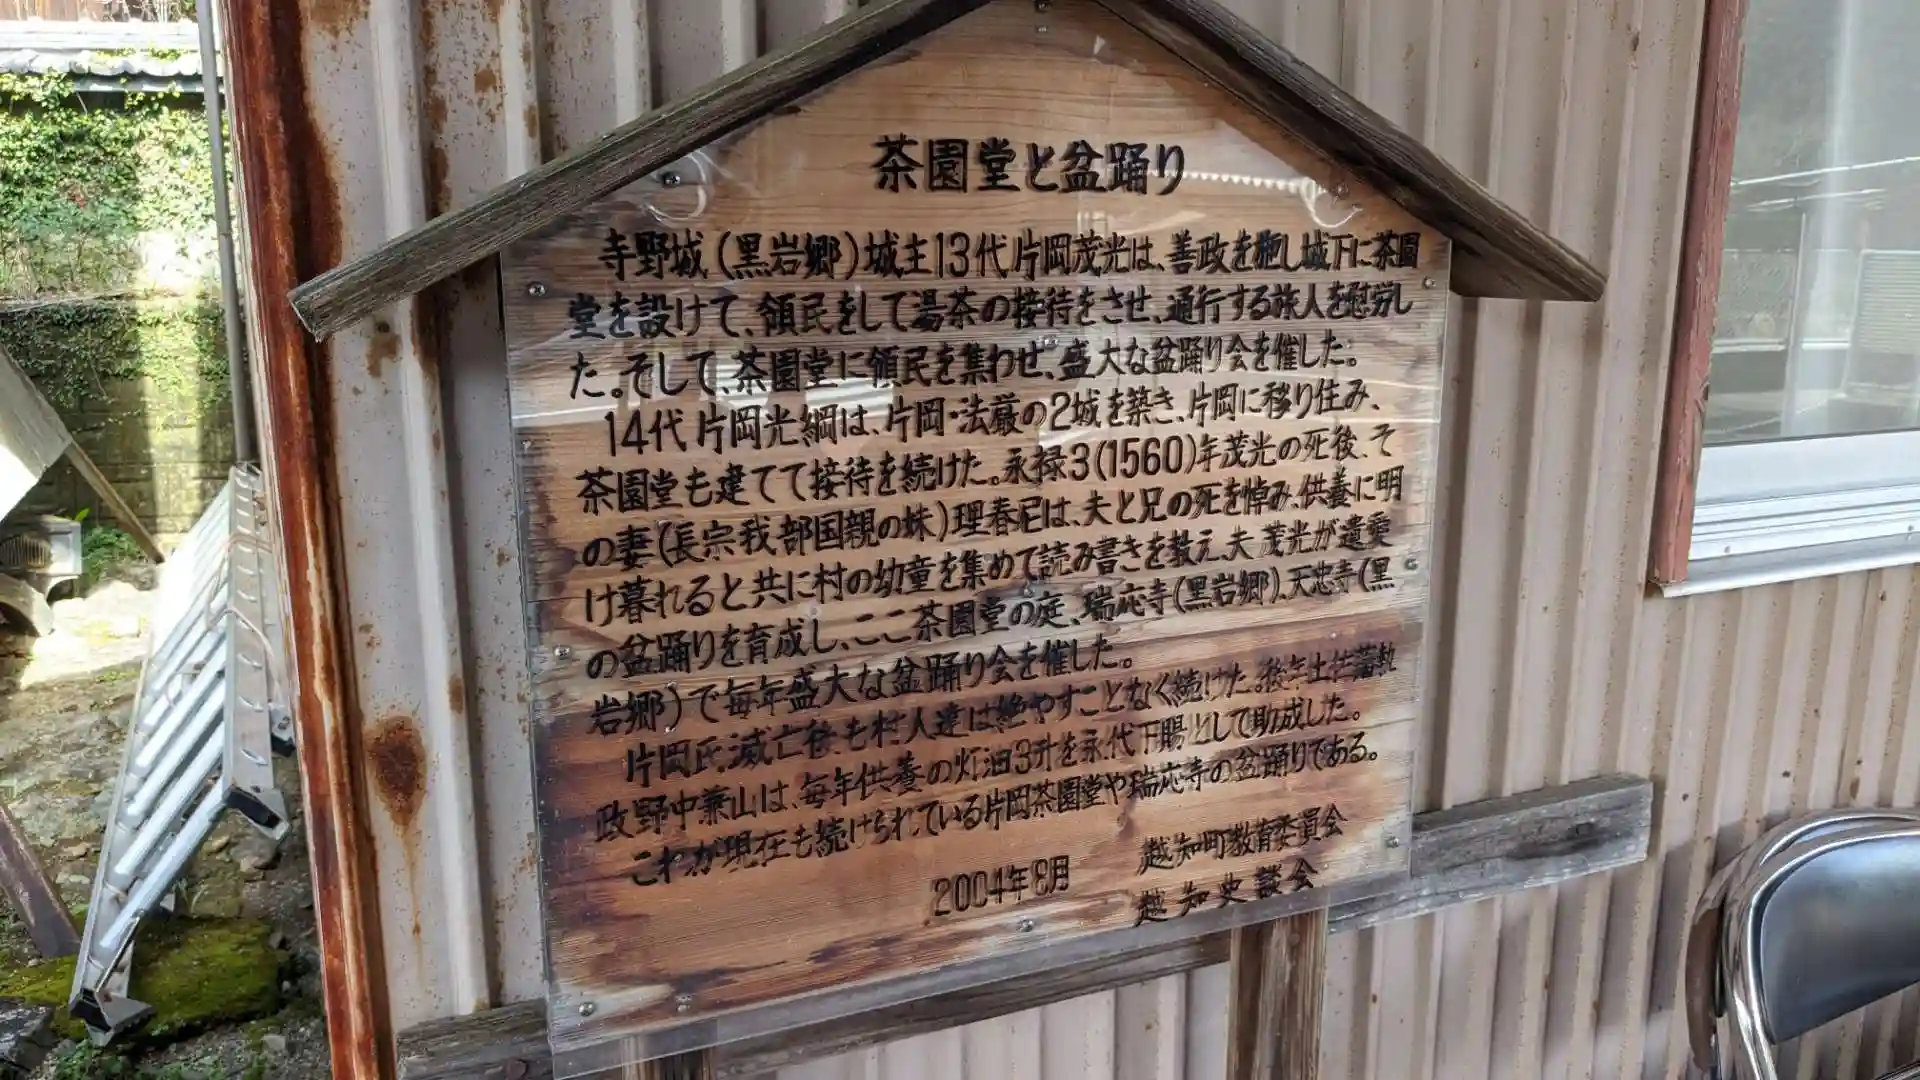 茶園堂と盆踊り
寺野城(黒岩郷)城主13代片岡茂光は、善政を施し城下に茶園
堂を設けて、領民をして湯茶の接待をさせ、通行する旅人を慰労し
た。そして、茶園堂に領民を集わせ、盛大な盆踊り会を催した。
14代片岡光綱は、片岡・法厳の2城を築き、片岡に移り住み、
茶園堂も建てて接待を続けた。永禄3(1560)年茂光の死後、そ
の妻(長宗我部国親の妹)理春尼は、夫と兄の死を悼み、供養に明
け暮れると共に村の幼童を集めて読み書きを教え、夫茂光が遺愛
の盆踊りを育成し、ここ茶園堂の庭、瑞応寺(黒岩郷)、天忠寺(黒
岩郷)で毎年盛大な盆踊り会を催した。
片岡氏滅亡後も村人達は絶やすことなく続けた。後年土佐藩執
政野中兼山は、毎年供養の灯油3升を永代下賜として助成した。
これが現在も続けられている片岡茶園堂や瑞応寺の盆踊りである。
2004年8月
越知町教育委員会
越知史談会